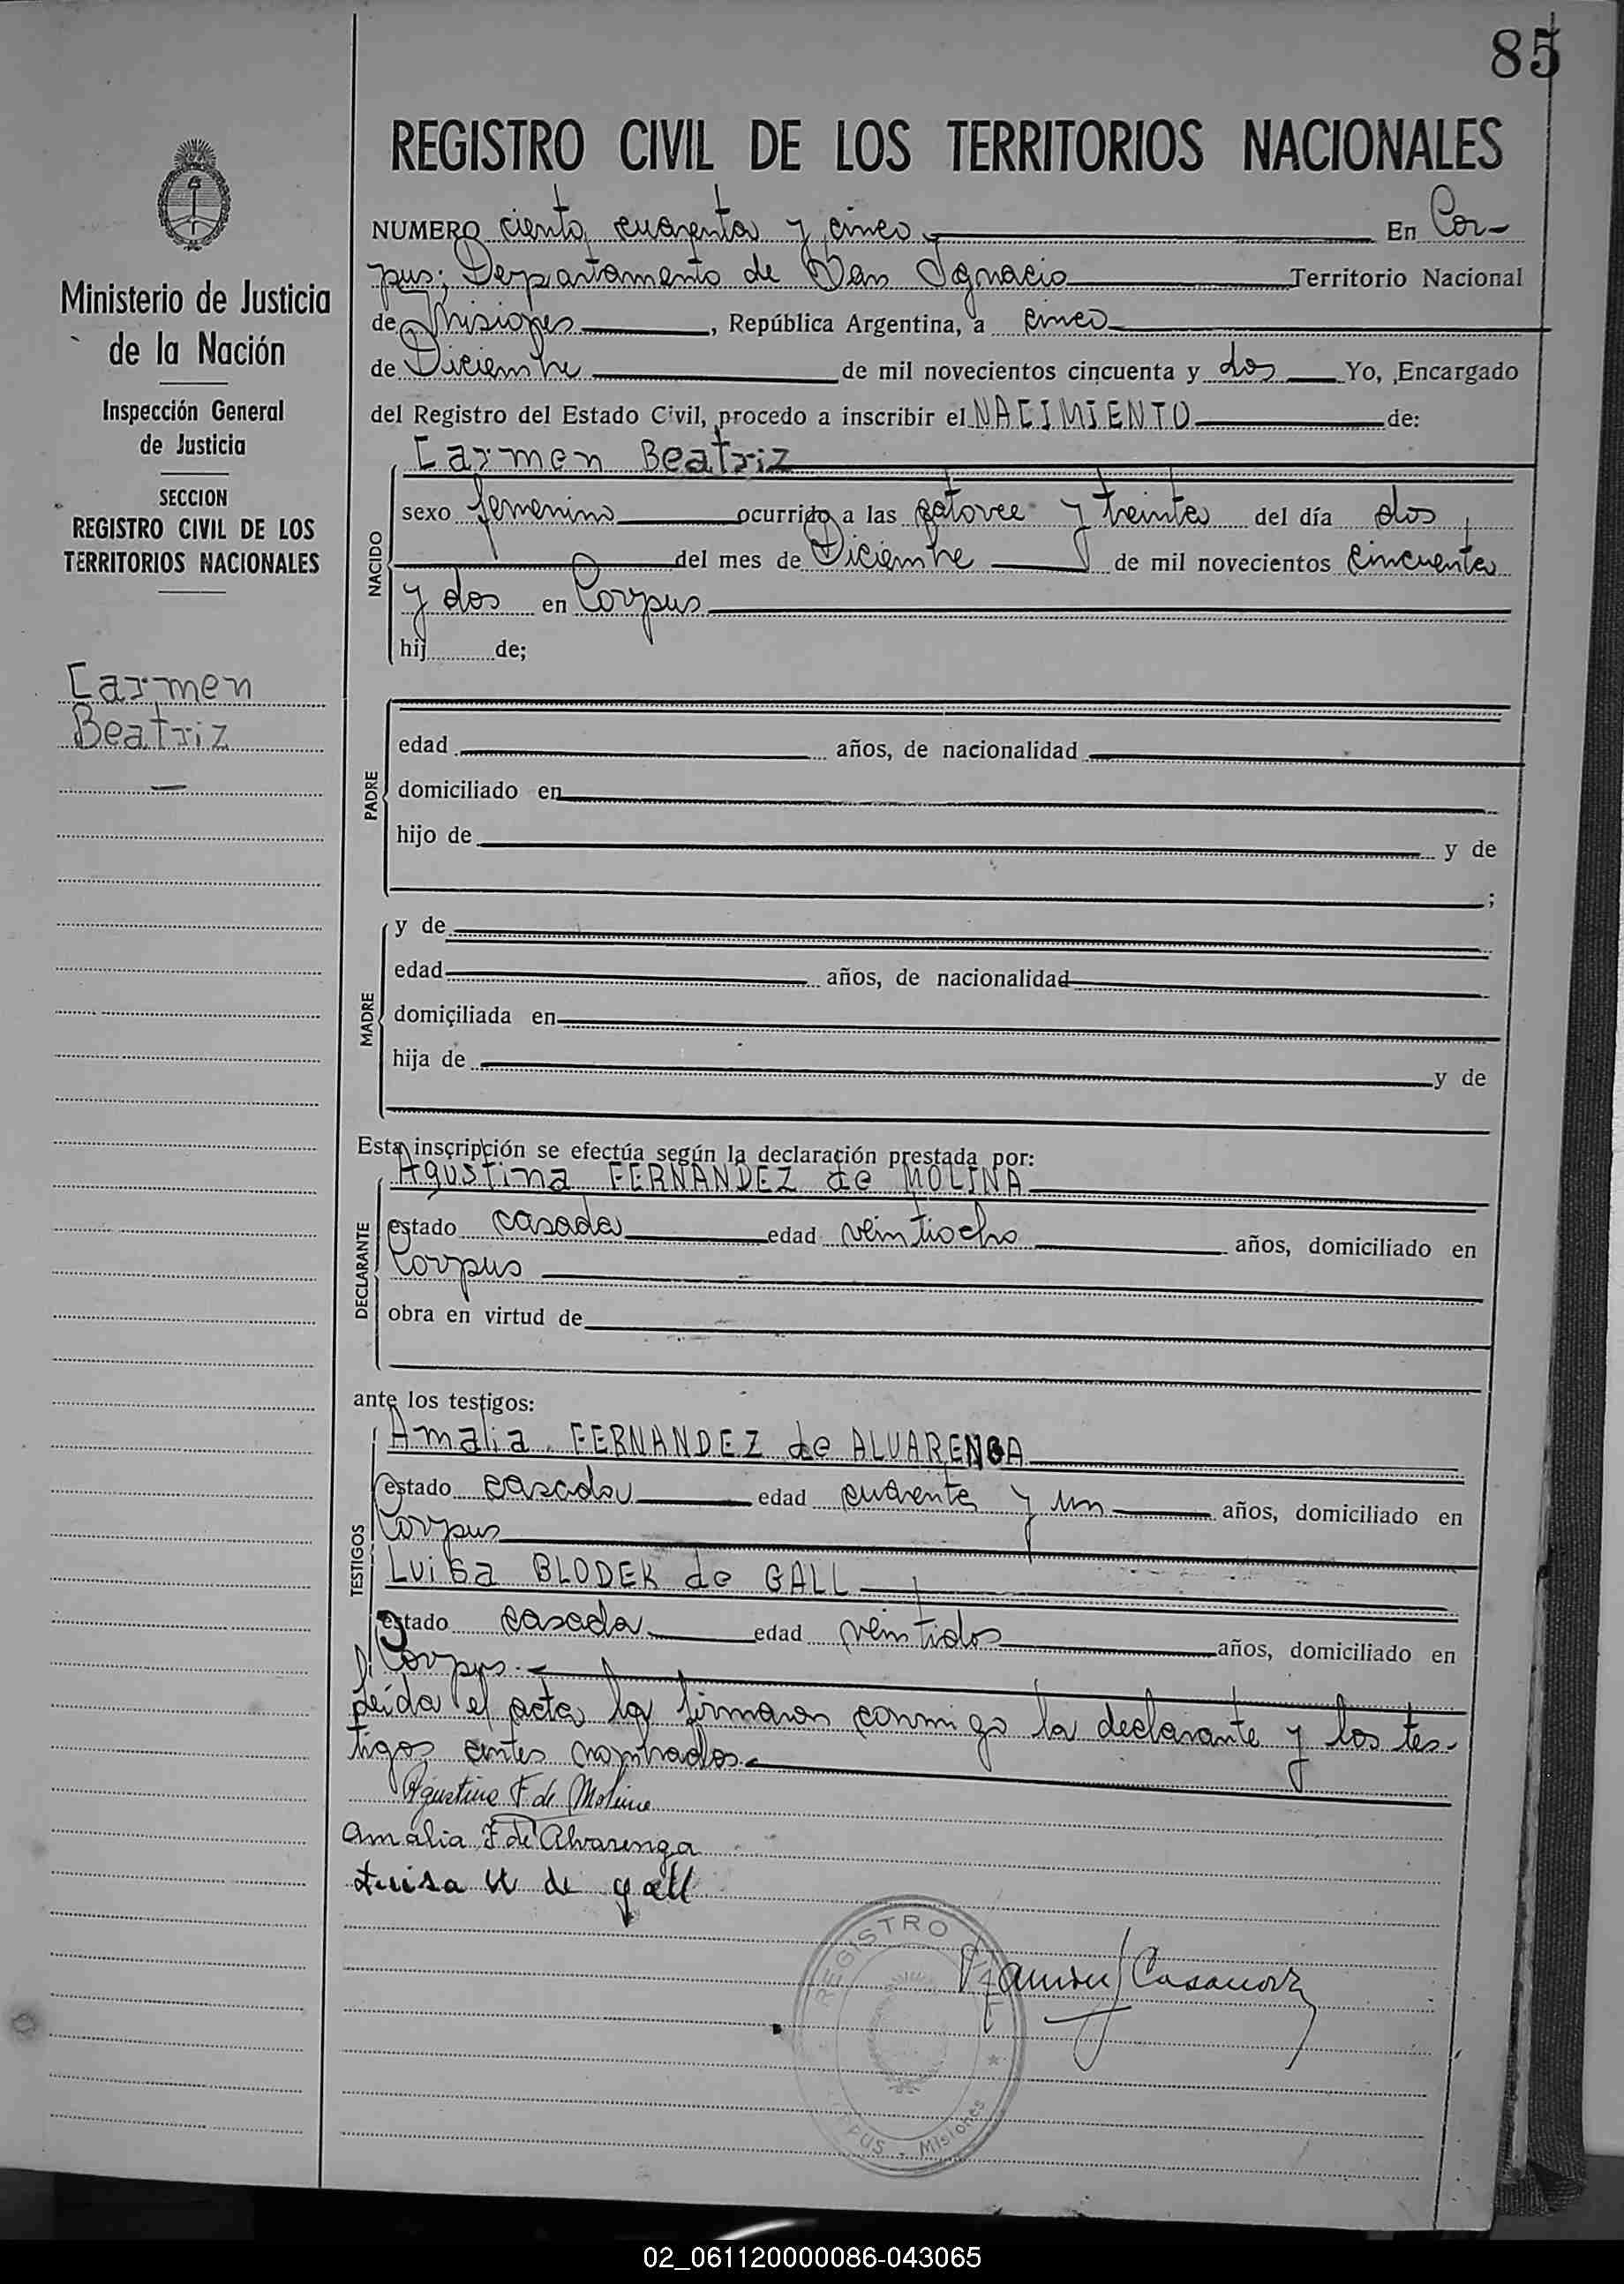 85
REGISTRO CIVIL DE LOS TERRITORIOS NACIONALES
NUMERO ciento cuarenta y cinco En Cor-
pus; Departamento de San Ignacio Territorio Nacional
de Misiones, República Argentina, a cinco
de Diciembre de mil novecientos cincuenta y dos Yo, Encargado
del Registro del Estado Civil, procedo a inscribir el NACIMIENTO de:
Carmen Beatriz
NACIDO
sexo femenino ocurrido a las catorce y treinta del día dos
del mes de Diciembre de mil novecientos cincuenta
y dos en Corpus
hij de;
Ministerio de Justicia
de la Nación
Inspección General
de Justicia
SECCION
REGISTRO CIVIL DE LOS
TERRITORIOS NACIONALES
Carmen
Beatriz
PADRE
edad años, de nacionalidad
domiciliado en
hijo de y de
;
MADRE
y de
edad años, de nacionalidad
domiciliada en
hija de y de
Esta inscripción se efectúa según la declaración prestada por:
DECLARANTE
Agustina FERNANDEZ de MOLINA
estado casada edad veintiocho años, domiciliado en
Corpus
obra en virtud de
ante los testigos:
TESTIGOS
Amalia FERNANDEZ de ALVARENGA
estado casada edad cuarenta y un años, domiciliado en
Corpus
Luisa BLODEK de GALL
estado casada edad veintidos años, domiciliado en
Corpus.-
Leída el acta la firmaron conmigo la declarante y los tes-
tigos antes nombrados.-
Agustina F. de Molina
Amalia F. de Alvarenga
Luisa de Gall
REGISTRO CIVIL
PUS - Misiones
Casanova
02_061120000086-043065